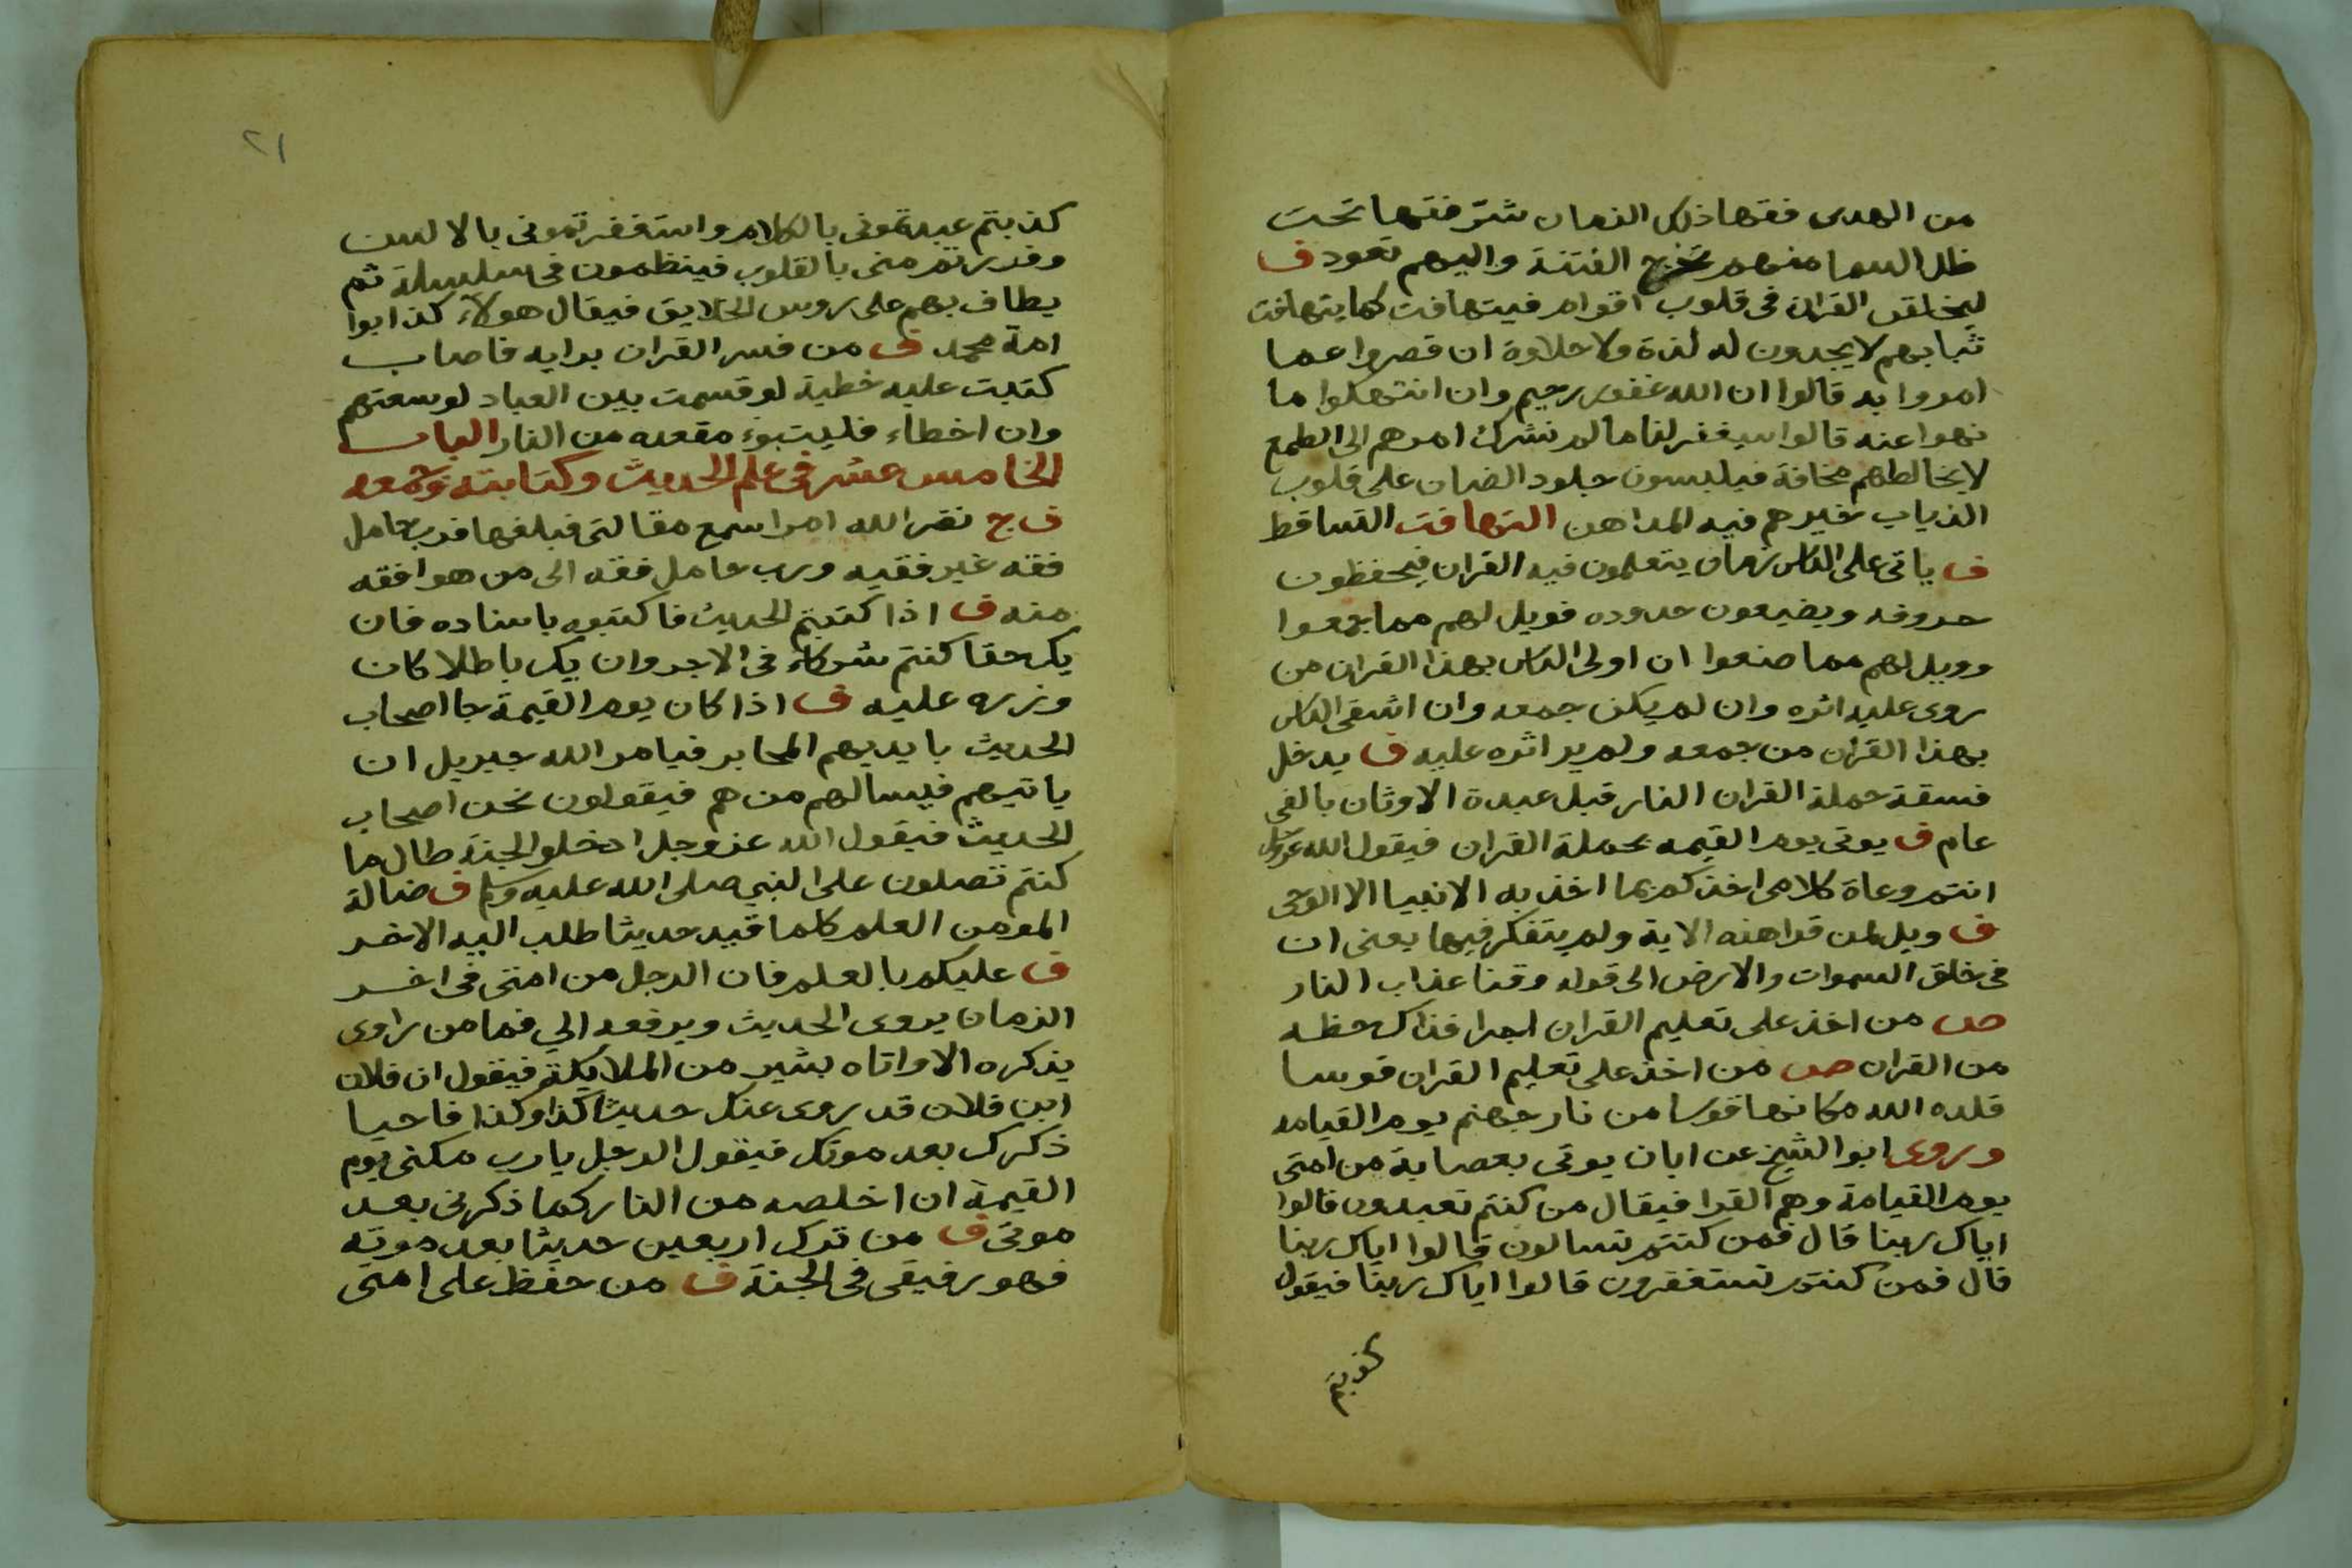 من الهدى فقهاذلك الزمان شر فقها تحت
ظل السما منهم تخرج الفتنة واليهم تعود ف
ليخلقن القران فى قلوب اقوام فيتهافت كما يتهافت
ثيابهم لايجدون له لذة ولا حلاوة ان قصروا عما
امروا به قالوا ان الله غفور رحيم وان انتهكوا ما
نهوا عنه قالوا سيغفر لنا مالم نشرك امرهم الى الطمع
لا يخالطهم مخافة فيلبسون جلود الضان على قلوب
الذياب خيرهم فيه المداهن التهافت التساقط
ف ياتى على الناس زمان يتعلمون فيه القران فيحفظون
حروفه ويضيعون حدوده فويل لهم مما جمعوا
وويل لهم مما صنعوا ان اولى الناس بهذا القران من
روى عليه اثره وان لم يكن جمعه وان اشقى الناس
بهذا القران من جمعه ولم ير اثره عليه ف يدخل
فسقة حملة القران النار قبل عبدة الاوثان بالفى
عام ف يوتى يوم القيمه بحملة القران فيقول الله عزوجل
انتم وعاة كلامى اخذكم بما اخذ به الانبيا الا الوحى
ف ويل لمن قرا هذه الاية ولم يتفكر فيها يعنى ان
فى خلق السموات والارض الى قوله وقنا عذاب النار
ص من اخذ على تعليم القران اجرا فذاك حظه
من القران ص من اخذ على تعليم القران قوسا
قلده الله مكانها قوسا من نار جهنم يوم القيامه
وروى ابو الشيخ عن ابان يوتى بعصابة من امتى
يوم القيامة وهم القرا فيقال من كنتم تعبدون قالوا
اياك ربنا قال فمن كنتم تسالون قالوا اياك ربنا
قال فمن كنتم تستغفرون قالوا اياك ربنا فيقول
كذبتم
٢١
كذبتم عبدتمونى بالكلام واستغفرتمونى بالالسن
وفررتم منى بالقلوب فينظمون فى سلسلة ثم
يطاف بهم على روس الخلايق فيقال هولاء كذابوا
امة محمد ف من فسر القران برايه فاصاب
كتبت عليه خطية لو قسمت بين العباد لوسعتهم
وان اخطاء فليتبوء مقعده من النار الباب
الخامس عشر فى علم الحديث وكتابته وجمعه
ف ج نضر الله امرا سمع مقالتى فبلغها فرب حامل
فقه غير فقيه ورب حامل فقه الى من هو افقه
منه ف اذا كتبتم الحديث فاكتبوه باسناده فان
يك حقا كنتم شركاء فى الاجر وان يك باطلا كان
وزره عليه ف اذا كان يوم القيمة جا اصحاب
الحديث بايديهم المحابر فيامر الله جبريل ان
ياتيهم فيسالهم من هم فيقولون نحن اصحاب
الحديث فيقول الله عزوجل ادخلوا الجنة طال ما
كنتم تصلون على النبى صلى الله عليه وسلم ف ضالة
المومن العلم كلما قيد حديثا طلب اليه الاخر
ف عليكم بالعلم فان الرجل من امتى فى اخر
الزمان يروى الحديث ويرفعه الي فما من راوى
يذكره الا واتاه بشير من الملايكة فيقول ان فلان
ابن فلان قد روى عنك حديثا كذا وكذا فاحيا
ذكرك بعد موتك فيقول الرجل يارب مكنى يوم
القيمة ان اخلصه من النار كما ذكرنى بعد
موتى ف من ترك اربعين حديثا بعد موته
فهو رفيقى فى الجنة ف من حفظ على امتى